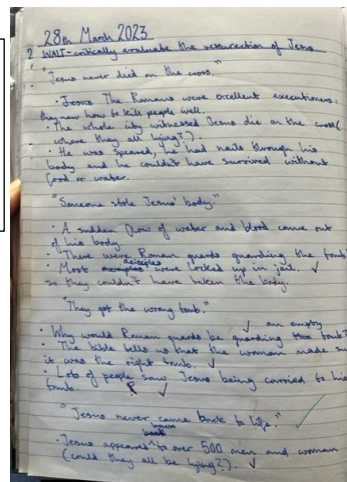 28th March 2023
WALT-critically evaluate the resurection of Jesus
"Jesus never died on the cross."
• Jesus The Romans were excellent executioners:
they new how to kill people well.
• The whole city witnessed Jesus die on the cross(
where they all lying?).
• He was speared, had nails through his
body and he couldn't have survived without
food or water.
"Someone stole Jesus' body."
• A sudden flow of water and blood came out
of his body.
• There were Roman guards guarding the tomb
• Most disciples were locked up in jail. ✓
so they couldn't have taken the body.
"They got the wrong tomb."
✓ an empty
• Why would Roman guards be guarding tomb?
• The bible tells us that the woman made su
it was the right tomb. ✓
• Lots of people saw Jesus being carried to his
tomb. ✓
"Jesus never came back to life."
• Jesus appeared to over 500 men and woman
(could they all be lying?). ✓